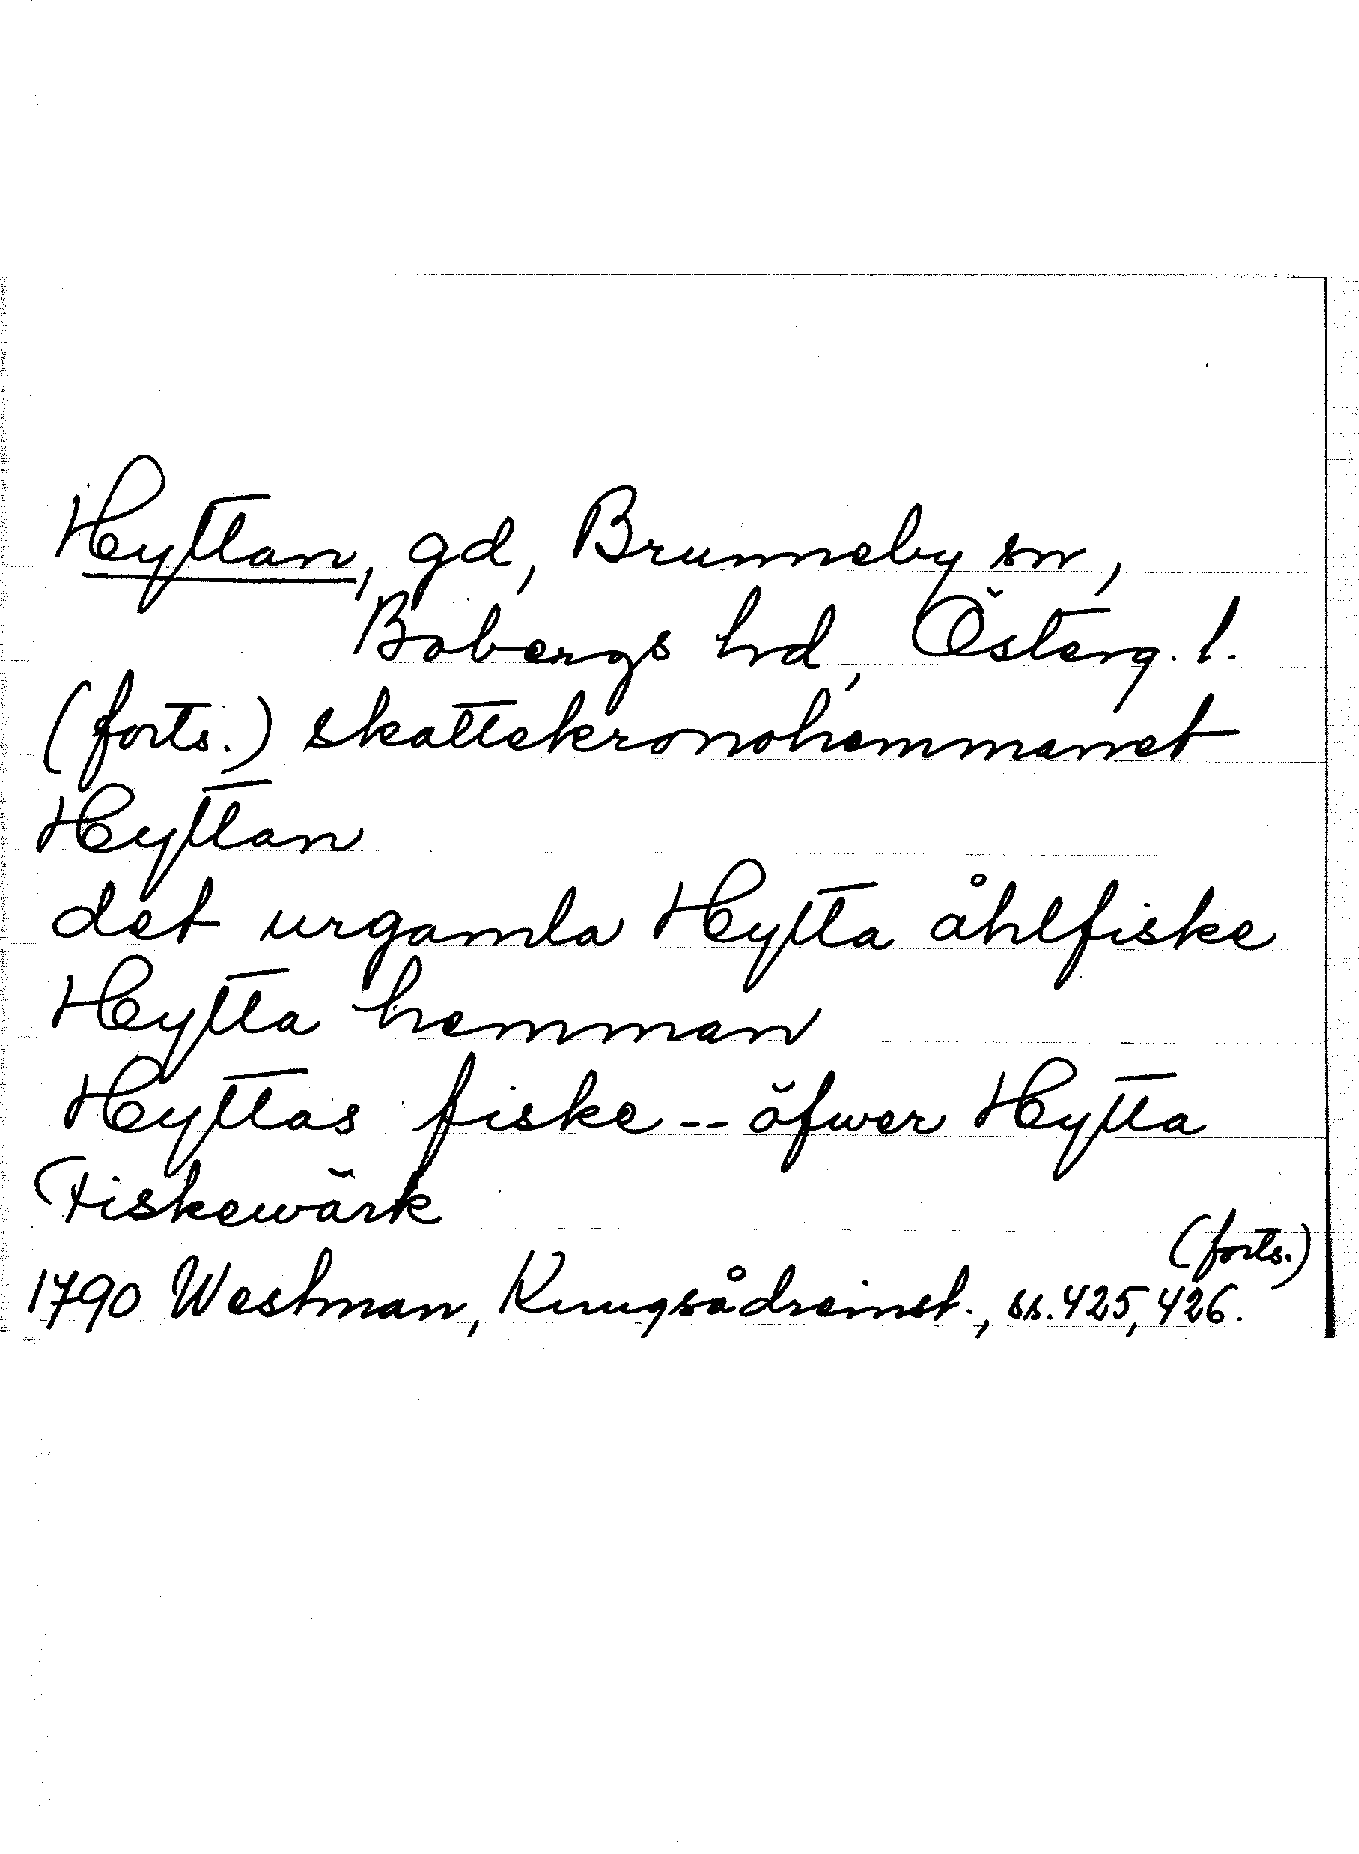 Hyttan, gd, Brunneby sn,
Bobergs hd, Österg. l.
(forts.) skattekronohemmanet
Hyttan
det urgamla Hytta åhlfiske
Hytta hemman
Hyttas fiske -- öfwer Hytta
Fiskewärk
(forts.)
1790 Westman, Kungsådreinst., ss. 425, 426.